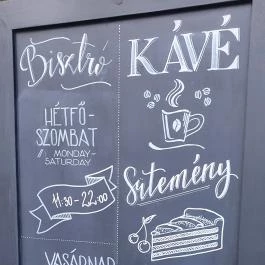 Bisztró
HÉTFŐ-
SZOMBAT
//: MONDAY-
SATURDAY
11:30-22:00
VASÁRNAP
KÁVÉ
Sütemény